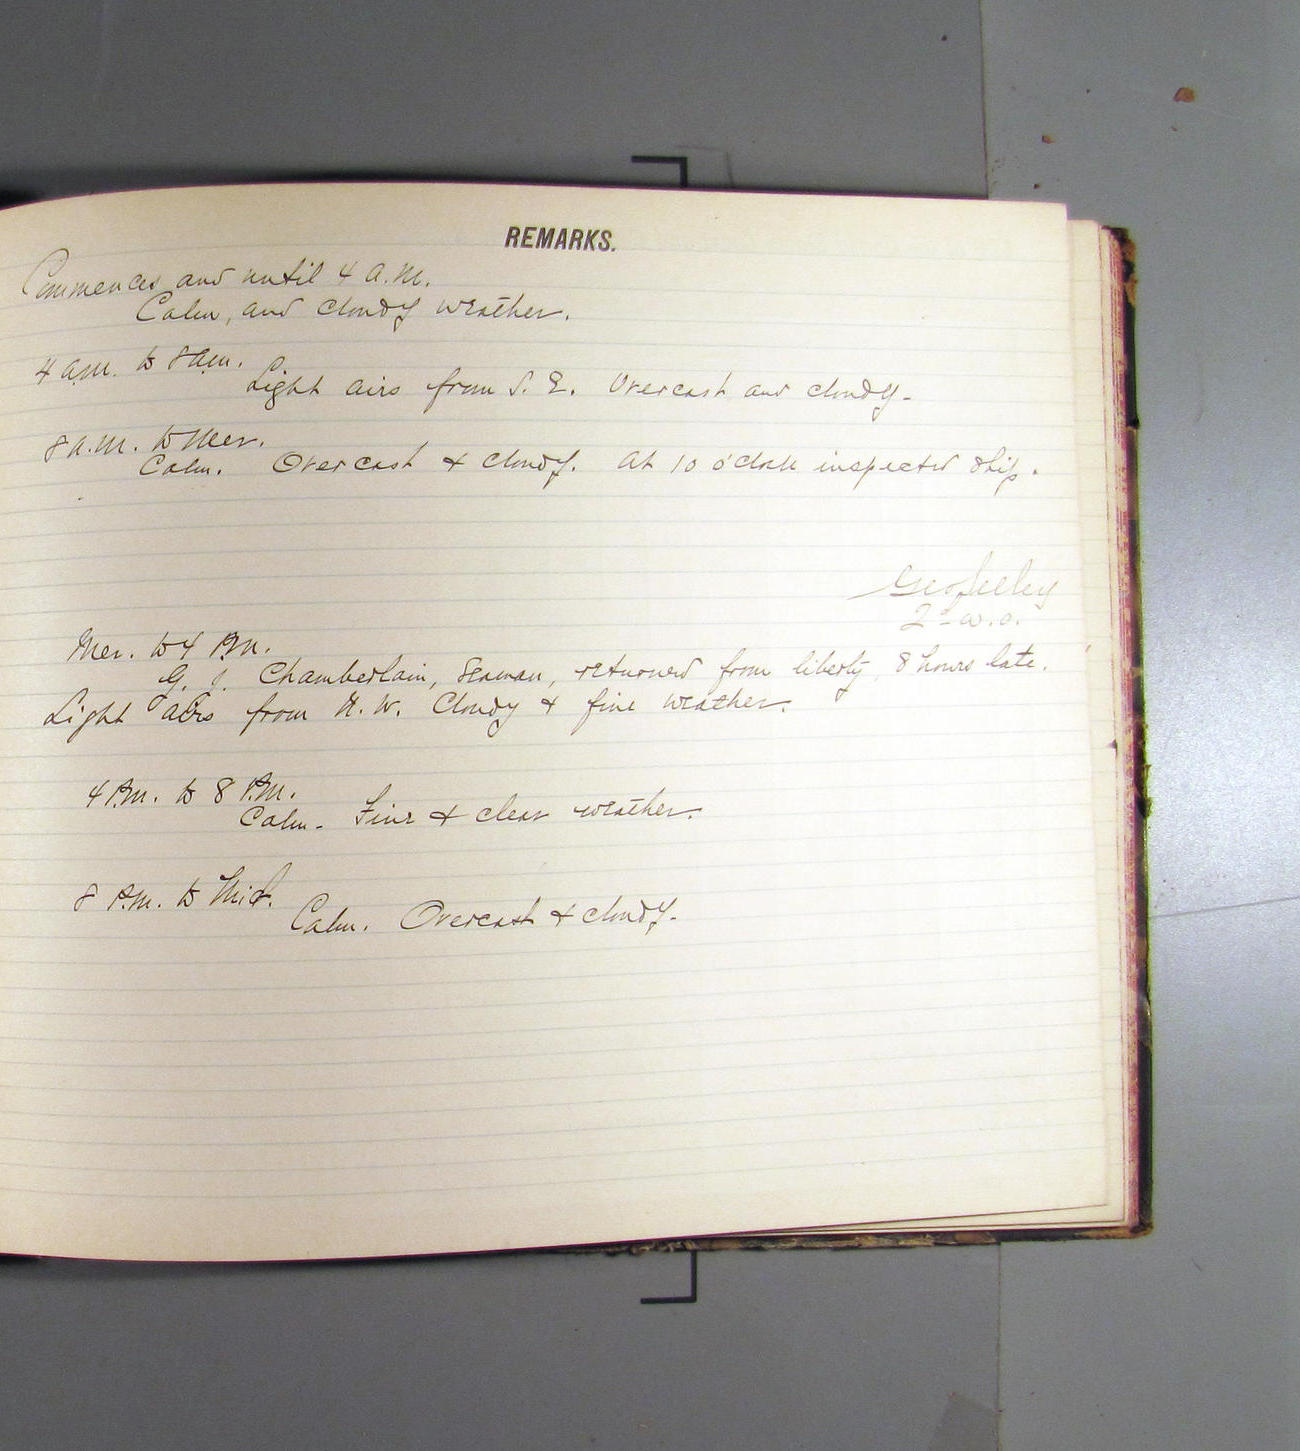 REMARKS.
Commences and until 4 a.m.
Calm, and cloudy weather.
4 am. to 8 am.
Light airs from S. E. Overcast and cloudy.
8 a.m. to Mer.
Calm. Overcast & cloudy. At 10 o'clock inspected ship.
Geo Seeley
2d w.o.
Mer. to 4 P.m.
G. J. Chamberlain, Seaman, returned from liberty, 8 hours late.
Light airs from N. W. Cloudy & fine weather.
4 P.m. to 8 P.m.
Calm. Fine & clear weather.
8 P.m. to Mid.
Calm. Overcast & cloudy.